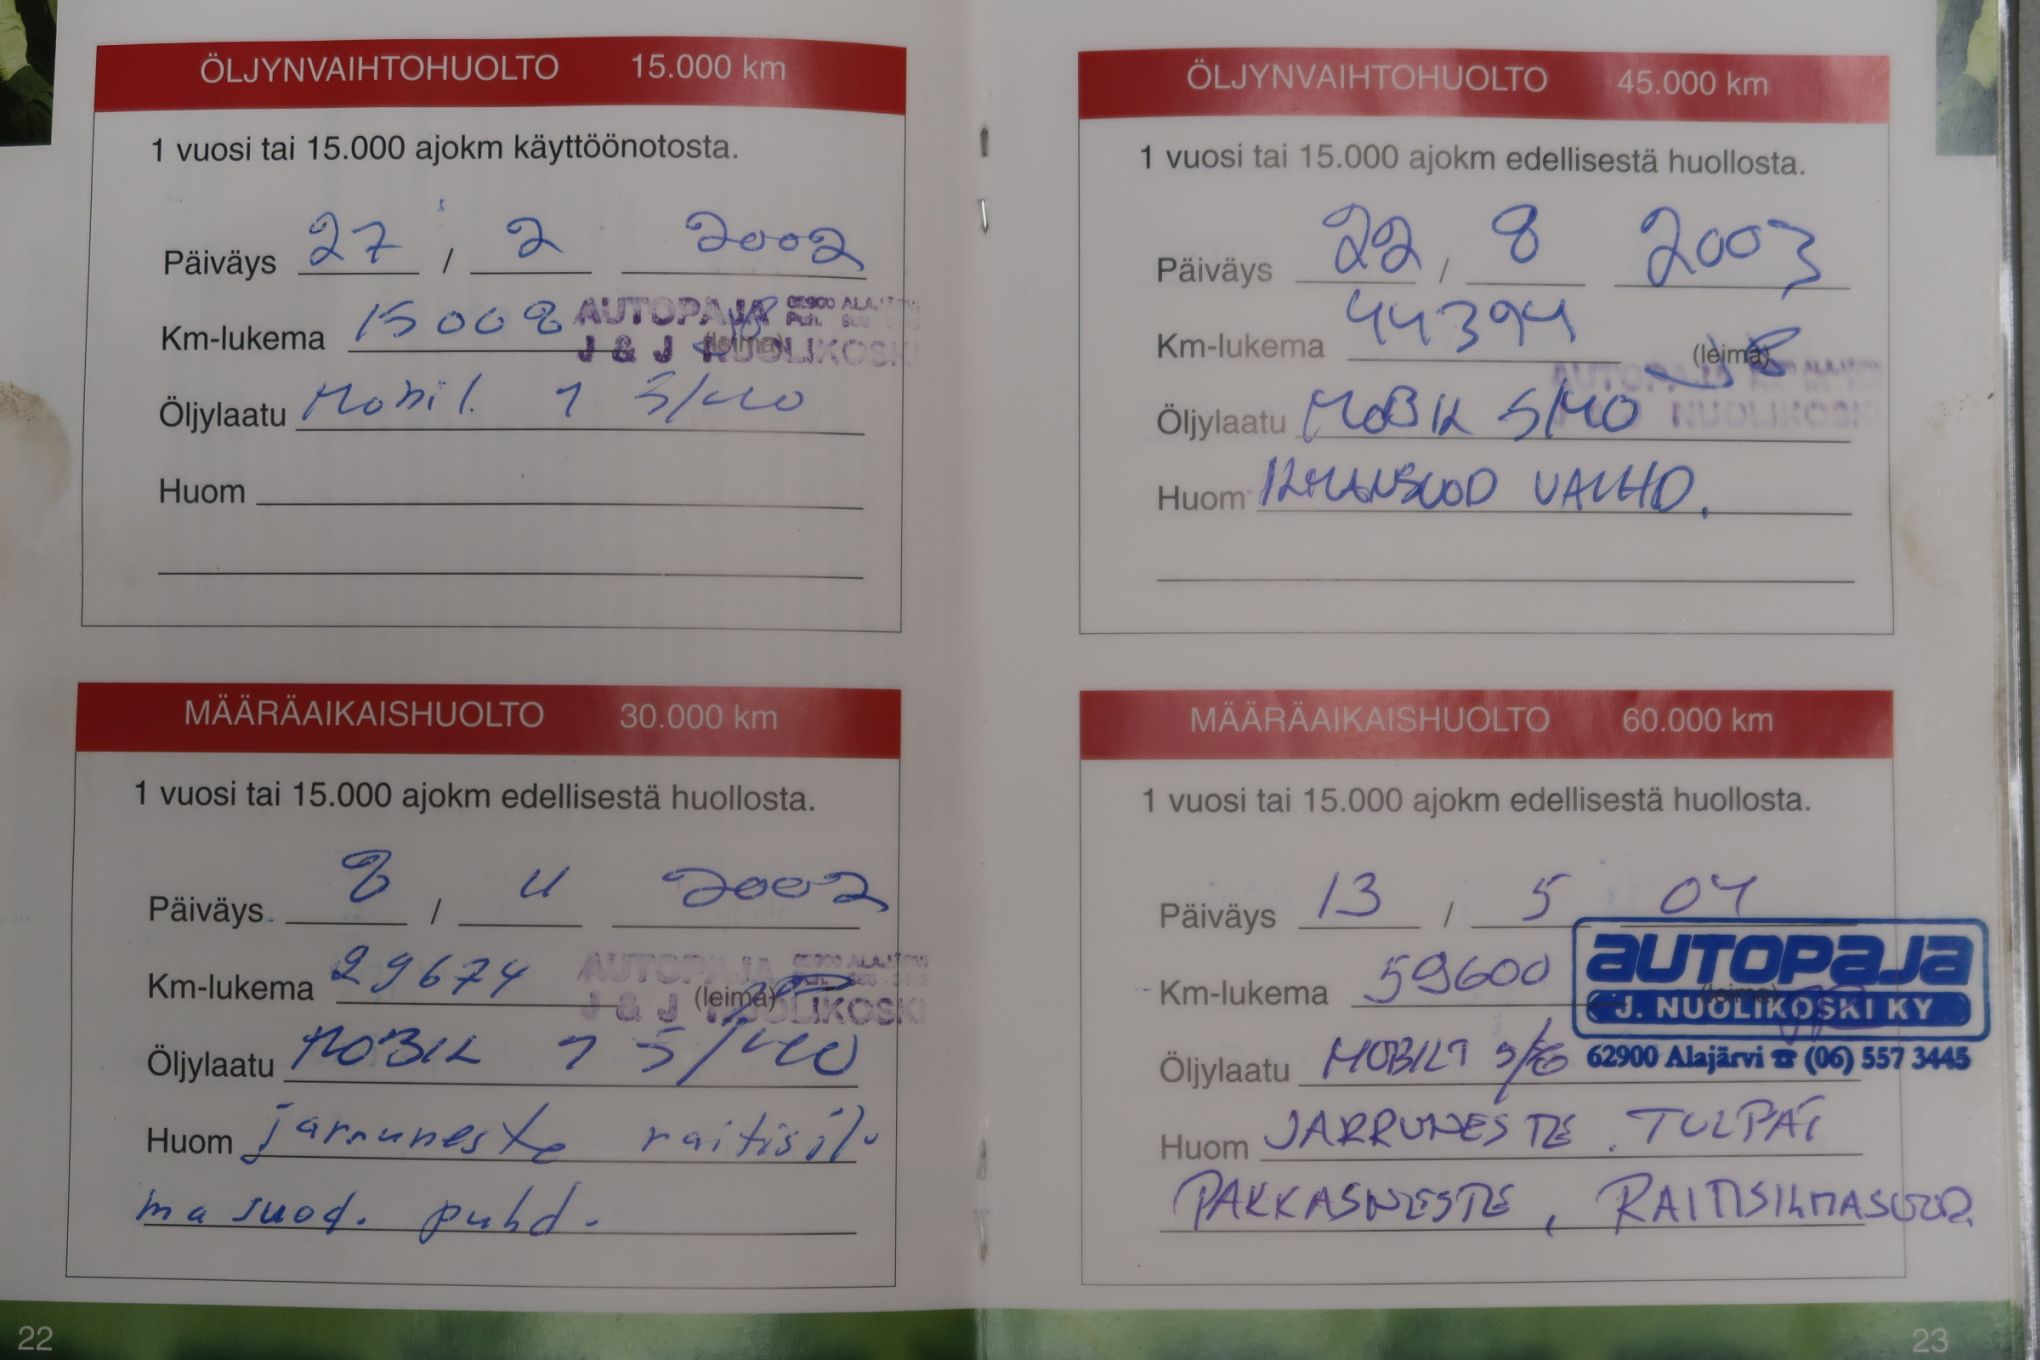 ÖLJYNVAIHTOHUOLTO 15.000 km
1 vuosi tai 15.000 ajokm käyttöönotosta.
Päiväys 27 / 2 2002
Km-lukema 15008 (leima)
AUTOPAJA 62900 ALAJÄRVI
J & J NUOLIKOSKI
Öljylaatu Mobil 1 5/40
Huom
MÄÄRÄAIKAISHUOLTO 30.000 km
1 vuosi tai 15.000 ajokm edellisestä huollosta.
Päiväys 8 / 11 2002
Km-lukema 29674 (leima)
AUTOPAJA 62900 ALAJÄRVI
J & J NUOLIKOSKI
Öljylaatu MOBIL 1 5/40
Huom jarruneste raitisil-
masuod. puhd.
22
ÖLJYNVAIHTOHUOLTO 45.000 km
1 vuosi tai 15.000 ajokm edellisestä huollosta.
Päiväys 22 / 8 2003
Km-lukema 44394 (leima)
AUTOPAJA
NUOLIKOSKI
Öljylaatu MOBIL 5/40
Huom ILMANSUOD VAIHD.
MÄÄRÄAIKAISHUOLTO 60.000 km
1 vuosi tai 15.000 ajokm edellisestä huollosta.
Päiväys 13 / 5 04
Km-lukema 59600 (leima)
autopaja
J. NUOLIKOSKI KY
62900 Alajärvi ☎ (06) 557 3445
Öljylaatu MOBIL 1
Huom JARRUNESTE. TULPAT
PAKKASNESTE, RAITISILMASUOD.
23